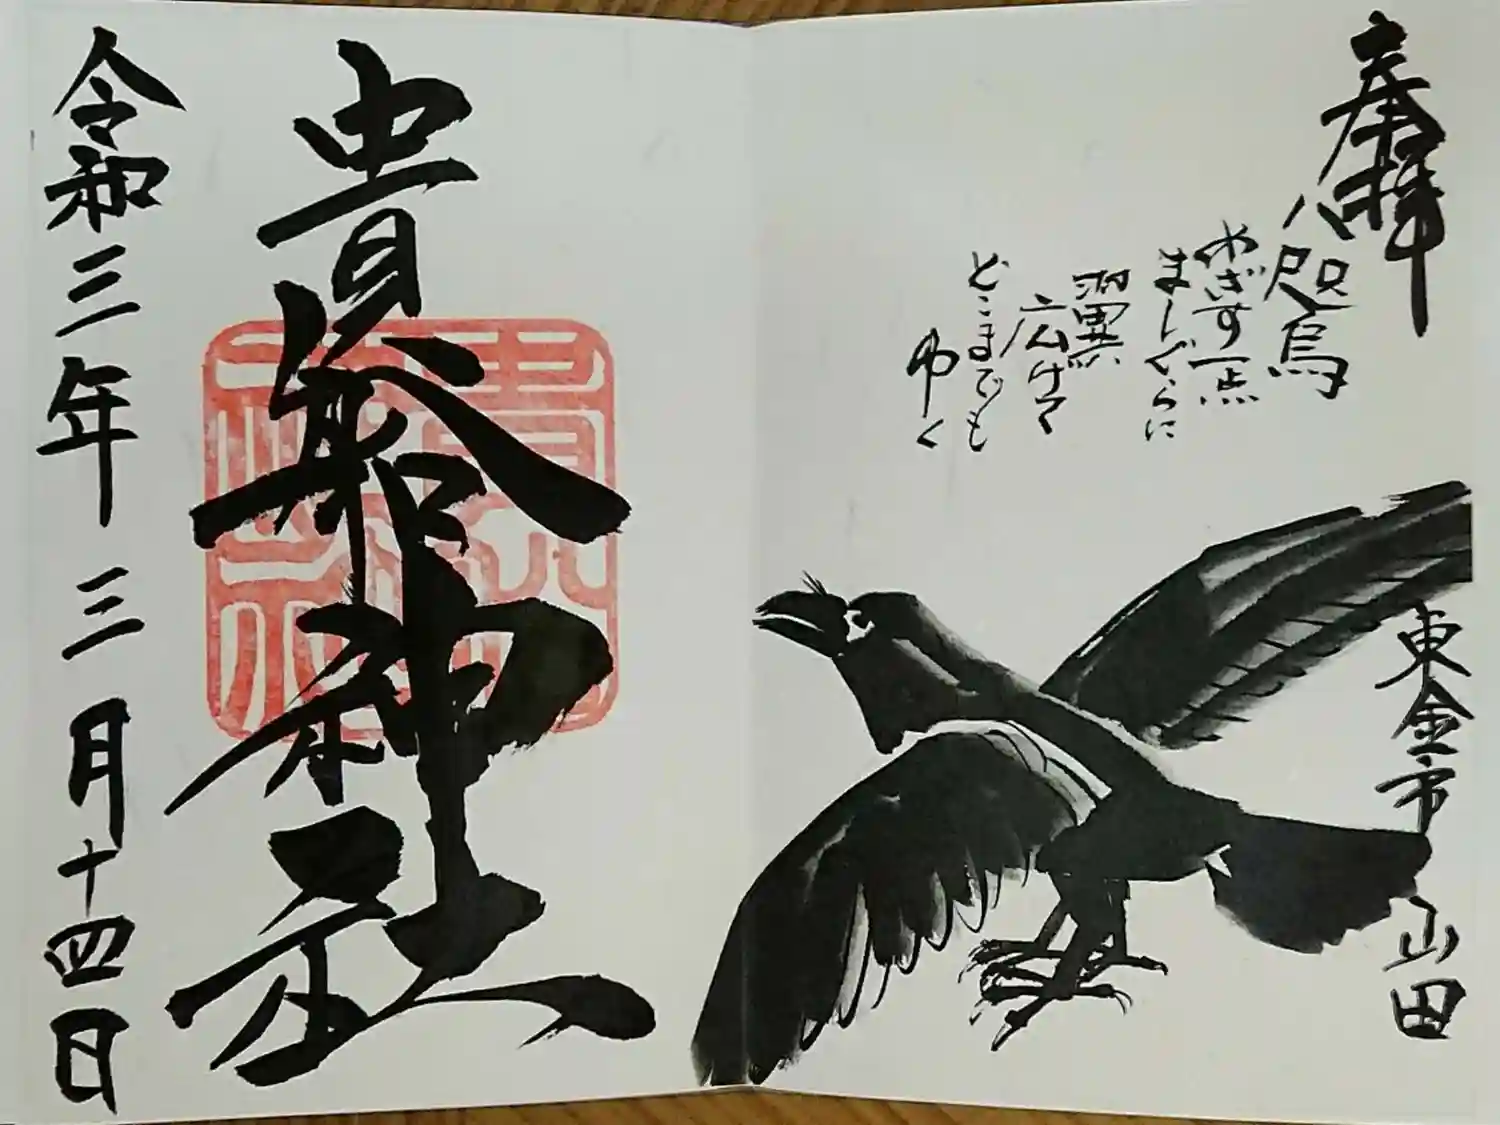 奉拝
八咫烏
めざす一点
ましぐらに
翼
広げて
どこまでも
ゆく
東金市 山田
貴船神社
令和三年三月十四日